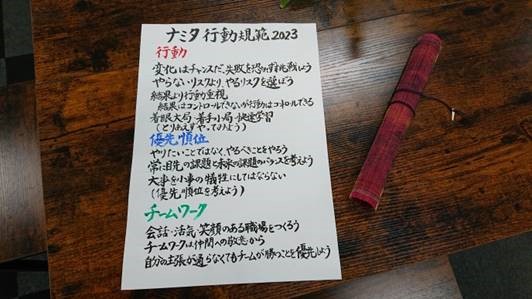 ナミタ 行動規範2023
行動
変化はチャンスだ、失敗を恐れず挑戦しよう
やらないリスクより、やるリスクを選ぼう
結果より行動重視
結果はコントロールできないが行動はコントロールできる
着眼大局・着手小局・快速学習
(とりあえずやってのよう)
優先順位
やりたいことではなく、やるべきことをやろう
常に目先の課題と未来の課題のバランスを考えよう
大事を小事の犠牲にしてはならない
(優先順位を考えよう)
チームワーク
会話・活気・笑顔のある職場をつくろう
チームワークは仲間への敬意から
自分の主張が通らなくてもチームが勝つことを優先しよう